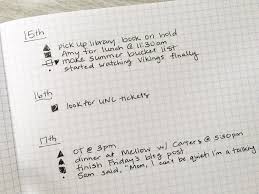 15th
pick up library book on hold
Amy for lunch @ 11:30am
make summer bucket list
started watching Vikings finally
16th
look for UNC tickets
17th
OT @ 3pm
dinner at Mellow w/ Carters @ 5:30pm
finish Friday's blog post
Sam said, "Mom, I can't be quiet! I'm a talking